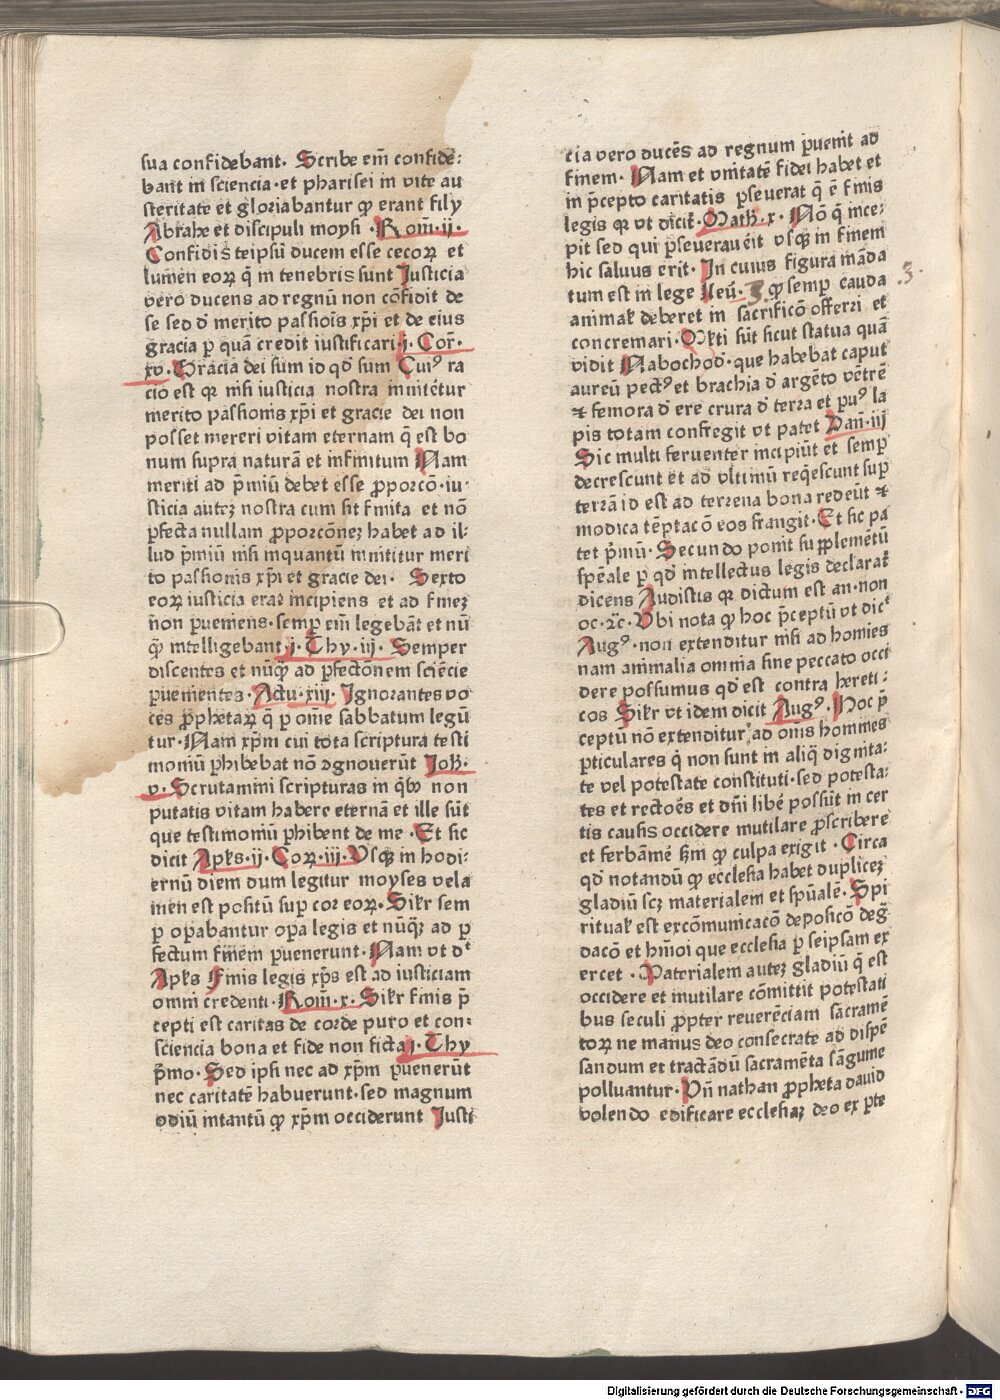 sua confidebant. Scribe em̄ confide:
bant in sciencia·et pharisei in vite au
steritate et gloriabantur ꝙ erant fily
Abrahe et discipuli moysi ·Rom̄·ij·
Confidis teipsū ducem esse cecoꝝ et
lumen eoꝝ q̄ in tenebris sunt Iusticia
vero ducens ad regnū non cōfidit de
se sed d̄ merito passiois xp̄i et de eius
gracia p quā credit iustificari·j· Cor·
xv· Gracia dei sum id qd̄ sum Cui⁹ ra
cio est qꝛ nisi iusticia nostra inniteret̄ur
merito passionis xp̄i et gracie dei non
posset mereri vitam eternam q̄ est bo
num supra naturā et infinitum Nam
meriti ad p̄miū debet esse ꝓporcō·iu·
sticia autez nostra cum sit finita et nō
ꝑfecta nullam ꝓporcōnez habet ad il:
lud p̄miū nisi inquantū innititur meri
to passionis xp̄i et gracie dei· Sexto
eoꝝ iusticia erat incipiens et ad finez
non ꝑueniens·semp em̄ legebāt et nū
ꝙ̄ intelligebant j· Thy·iij· Semper
discentes et nūꝙ̄ ad ꝑfectōnem sciēcie
ꝑuenientes ·Actu·xiij· Ignorantes vo
ces ꝓphetaꝝ q̄ p om̄e sabbatum legū
tur·Nam xp̄m cui tota scriptura testi
moniū ꝑhibebat nō ꝯgnouerūt Joh̄·
v·Scrutamini scripturas in qb⁹ non
putatis vitam habere eternā et ille sūt
que testimoniū ꝑhibent de me ·Et sic
dicit Apl̄s·ij·Coꝝ·iij·Vsqꝫ in hodi:
ernū diem dum legitur moyses vela
men est positū suꝑ cor eoꝝ·Silr̄ sem
p oꝑabantur oꝑa legis et nūqꝫ ad ꝑ
fectum finem ꝑuenerunt·Nam vt dᵗ
Apl̄s Finis legis xp̄s est ad iusticiam
omni credenti·Rom̄·x·Silr̄ finis p̄
cepti est caritas de corde puro et con:
sciencia bona et fide non ficta j·Thy
p̄mo·Sed ipsi nec ad xp̄m ꝑuenerūt
nec caritatē habuerunt·sed magnum
odiū intantū ꝙ xp̄m occiderunt Iusti
cia vero ducēs ad regnum ꝑuenit ad
finem· Nam et vnitatē fidei habet et
in p̄cepto caritatis ꝑseuerat q̄ ē finis
legis qꝛ vt dicit̄·Math̄·x· Nō q̄ ince:
pit sed qui ꝑseuerauēit vsqꝫ in finem
hic saluus erit· In cuius figura māda
tum est in lege Leū·3·ꝙ semꝑ cauda ·3·
animal̄ deberet in sacrificō offerri et
concremari·Mlti sūt sicut statua quā
vidit Nabochod̄·que habebat caput
aureū pect⁹ et brachia d̄ argēto vētrē
⁊ femora d̄ ere crura d̄ terra et pu⁹ la
pis totam confregit vt patet Dan̄·iij
Sic multi feruenter incipiūt et semꝑ
decrescunt et ad vltimū reqͥescunt suꝑ
terrā id est ad terrena bona redeūt ⁊
modica tēptacō eos frangit·Et sic pa
tet p̄mū· Secundo ponit supplemētū
spēale p qd̄ intellectus legis declarat̄
dicens Audistis qꝛ dictum est an·non
oc·⁊c·Vbi nota ꝙ hoc p̄ceptū vt dicᵗ
Aug⁹·non extenditur nisi ad homies
nam animalia omnia sine peccato occi
dere possumus qd̄ est contra hereti:
cos Silr̄ vt idem dicit Aug⁹· Hoc p̄
ceptū nō extenditur ad om̄s homines
ꝑticulares q̄ non sunt in aliq̄ dignita:
te vel potestate constituti·sed potesta:
tes et rectoēs et dn̄i libē possūt in cer
tis causis occidere mutilare ꝓscribere
et ferbāmē ẜm ꝙ culpa exigit · Circa
qd̄ notandū ꝙ ecclesia habet duplicez
gladiū scꝫ materialem et spūalē· Spi
ritual̄ est excōmunicacō deposicō deḡ
dacō et hmōi que ecclesia p seipsam ex
ercet · Materialem autez gladiū q̄ est
occidere et mutilare cōmittit potestati
bus seculi ꝓpter reuerēciam sacramē
toꝝ ne manus deo consecrate ad dispē
sandum et tractādū sacramēta sāguine
polluantur·Vn̄ nathan ꝓpheta dauid
volendo edificare ecclesiaz deo ex ꝑte
Digitalisierung gefördert durch die Deutsche Forschungsgemeinschaft · DFG